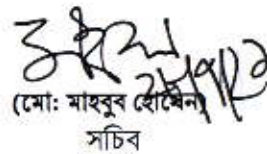 (মো: মাহবুব হোসেন)
সচিব